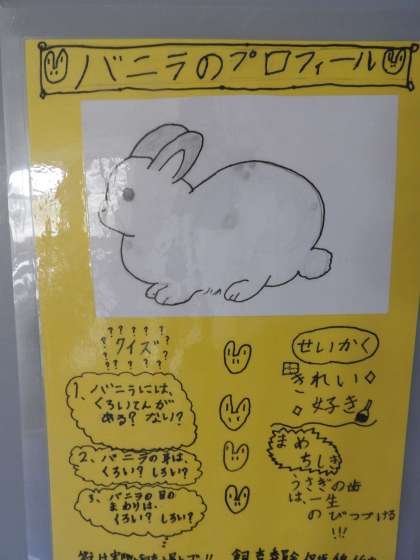 バニラのプロフィール
? ? ? ? ?
? クイズ ?
? ? ? ? ?
1、バニラには、
くろいてんが
ある? ない?
2、バニラの耳は、
くろい? しろい?
3、バニラの目の
まわりは、
くろい? しろい?
せいかく
きれい
好き
まめ
ちしき
うさぎの歯
は、一生
のびつづける
!!!